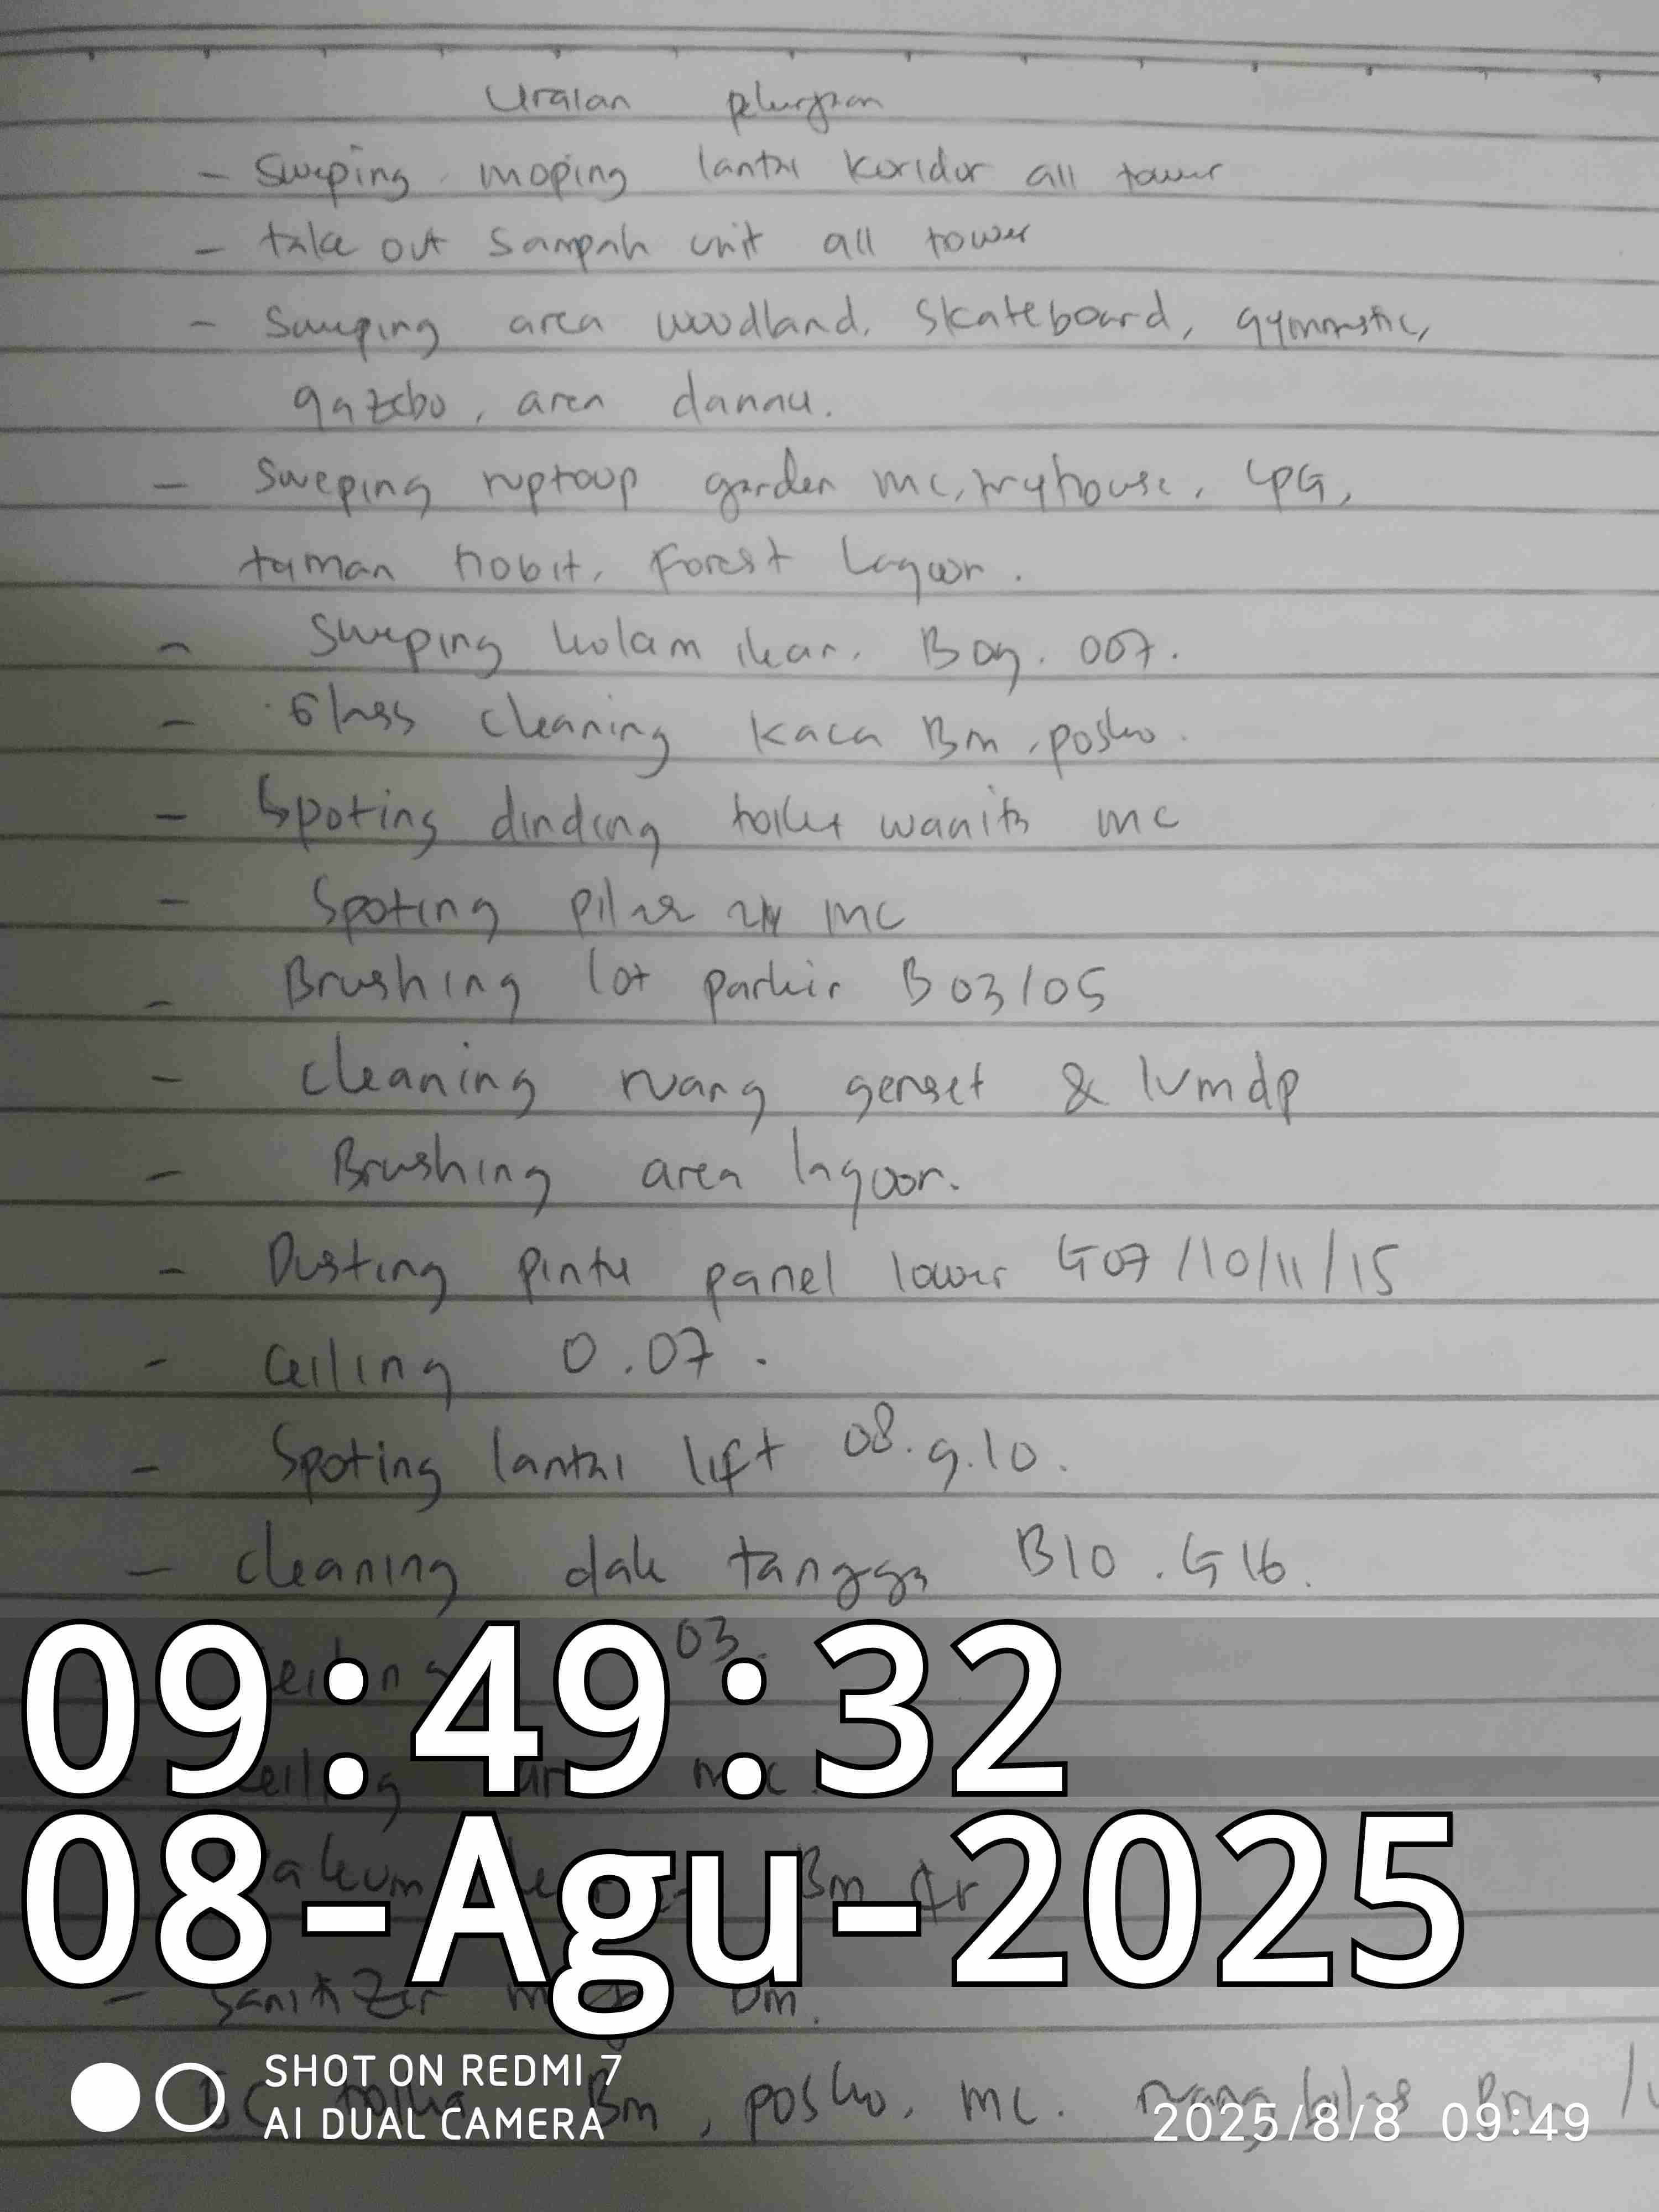 Uraian pekerjaan
- Sweping moping lantai koridor all tower
- take out Sampah unit all tower
- Sweping area woodland, Skateboard, gymnastic,
gazebo, area danau.
- Sweping ruptoup garden mc, tryhouse, LPG,
taman hobit, Forest Lagoon.
- Sweping kolam ikan. Bag. 007.
- Glass cleaning kaca Bm, posko.
- Spoting dinding toilet wanita mc
- Spoting pilar MC
- Brushing lot parkir B 03/05
- Cleaning ruang genset & lvmdp
- Brushing area lagoon.
- Dusting pintu panel lower G07/10/11/15
- Ceiling 0.07.
- Spoting lantai lift 08.9.10.
- Cleaning dak tangga B10.G16.
03.
09:49:32
08-Agu-2025
Bm
- Sanitizer Bm.
Bm, posko, mc. ruang
SHOT ON REDMI 7
AI DUAL CAMERA
2025/8/8 09:49